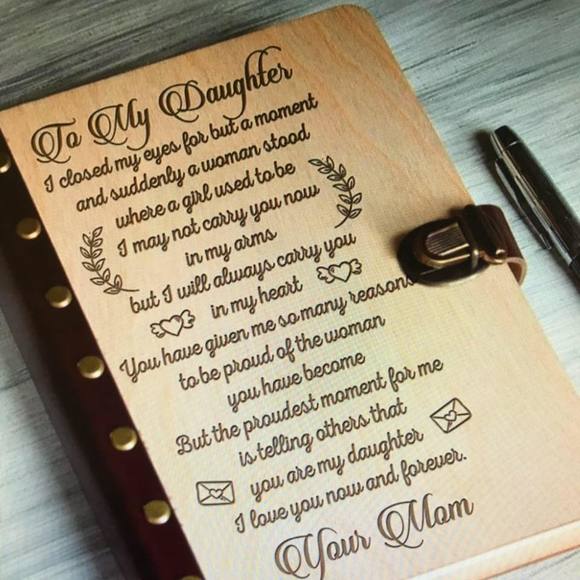 To My Daughter
I closed my eyes for but a moment
and suddenly a woman stood
where a girl used to be
I may not carry you now
in my arms
but I will always carry you
in my heart
You have given me so many reasons
to be proud of the woman
you have become
But the proudest moment for me
is telling others that
you are my daughter
I love you now and forever.
Your Mom